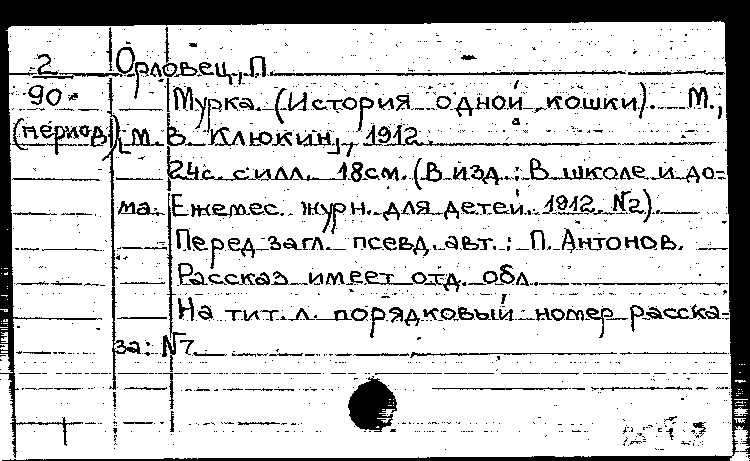 2 Орловец, П.
90. Мурка. (История одной кошки). М.,
(период) [М. В. Клюкин], 1912.
24с. с илл. 18см. (В изд.: В школе и до-
ма. Ежемес. журн. для детей. 1912. №2).
Перед загл. псевд. авт.: П. Антонов.
Рассказ имеет отд. обл.
На тит. л. порядковый номер расска-
за: №7